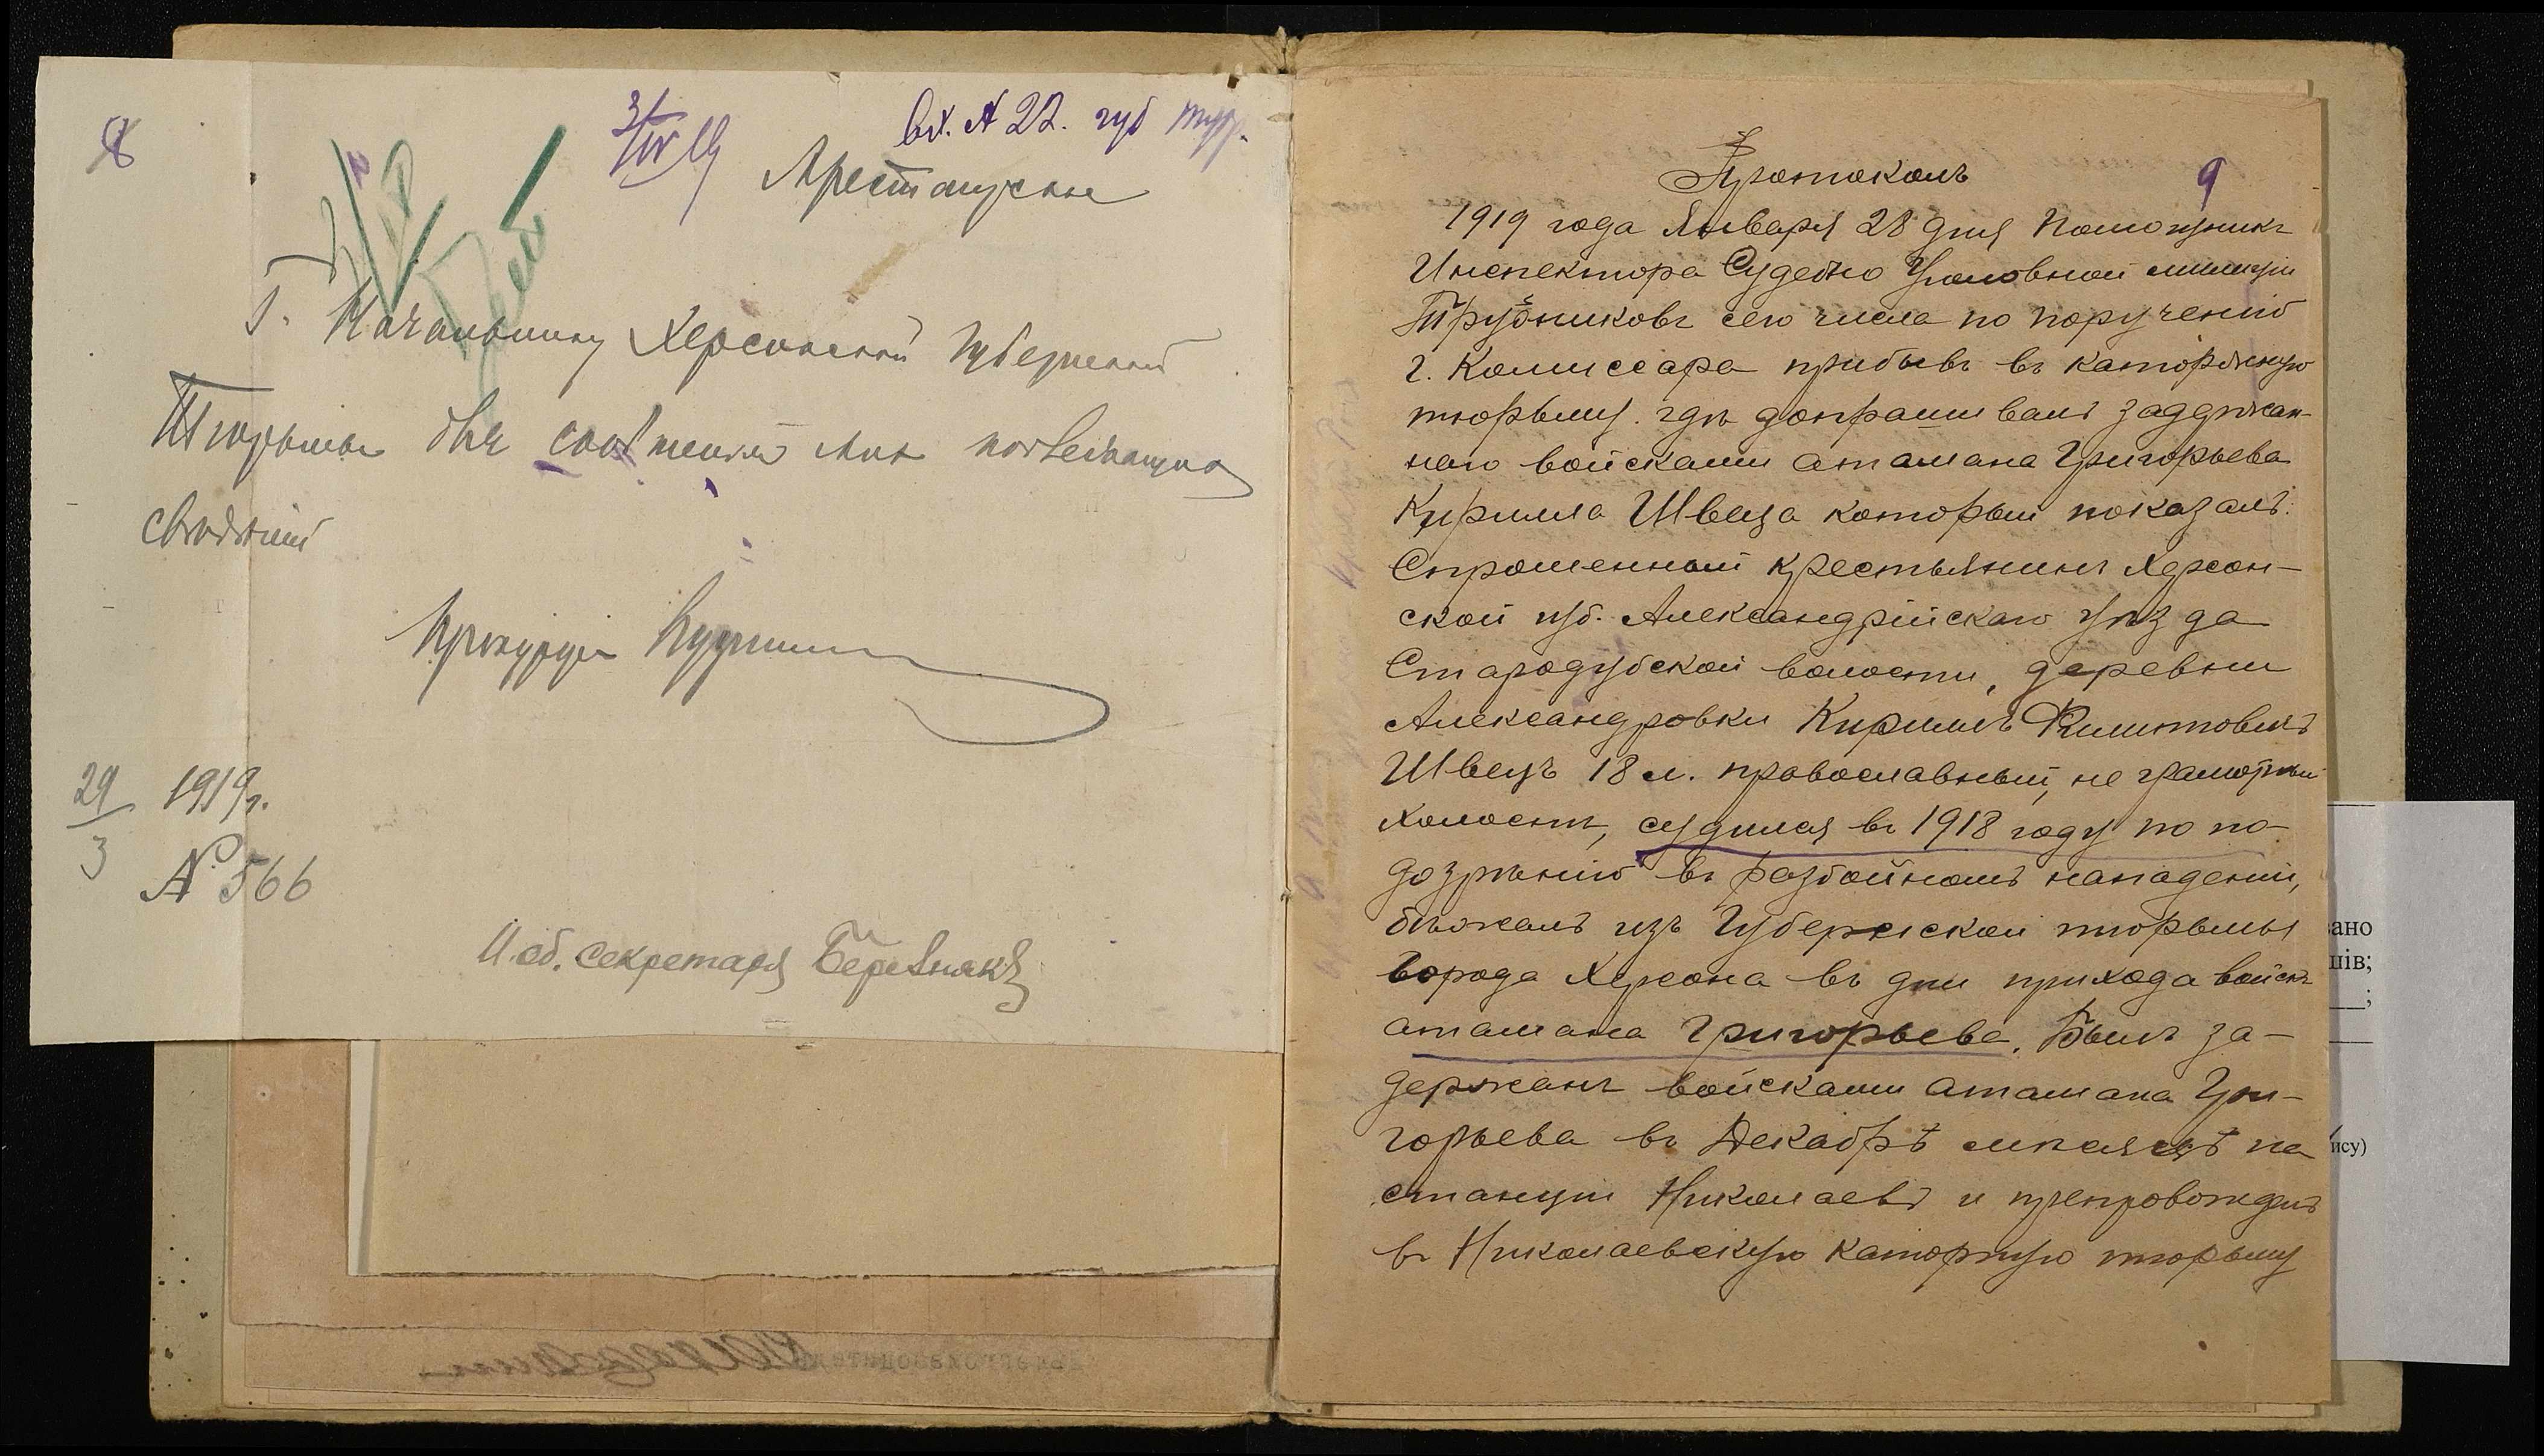 8
3/IV 19
вх. № 22. губ тюр.
Арестантское
Г. Начальнику Херсонской Губернской
Тюрьмы для сообщения мне
сведений
Прокурор
29/3 1919 г.
№ 566
И. об. секретаря Березняк
9
Протоколъ
1919 года Января 28 дня Помощникъ
Инспектора Судебно Уголовной милиціи
Трубниковъ сего числа по порученію
г. Комиссара прибывъ въ каторжную
тюрьму. гдѣ допрашивалъ задержан-
наго войсками атамана Григорьева
Кирилла Швеца который показалъ:
Спрошенный крестьянинъ Херсон-
ской губ. Александрійскаго уѣзда
Стародубской волости, деревни
Александровки Кириллъ Филиповичъ
Швецъ 18 л. православный, не грамотный
холостъ, судился въ 1918 году по по-
дозрѣнію въ разбойномъ нападеніи,
бѣжалъ изъ Губернской тюрьмы
города Херсона въ дни прихода войскъ
атамана Григорьева. Былъ за-
держанъ войсками атамана Гри-
горьева въ Декабрѣ мѣсяцѣ на
станціи Николаевъ и препровожденъ
въ Николаевскую каторжную тюрьму
вано
шів;
ису)